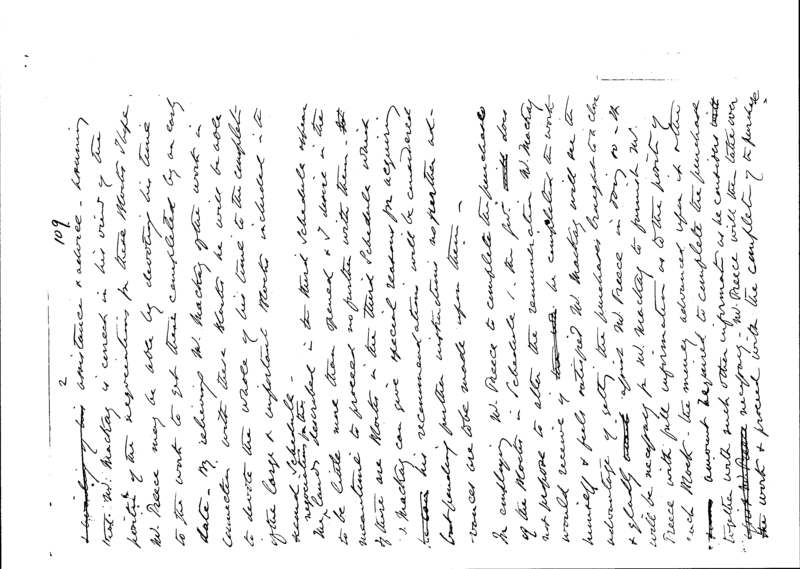 109
2
assistance & advice - Assuming
that Mr. Mackay is correct in his view of the
position of the negotiations for these Blocks I hope
Mr. Preece may be able by devoting his time
to the work to get these completed by an early
date - By relieving Mr. Mackay of the work in
connection with these Blocks he will be able
to devote the whole of his time to the completion
of the large & important Blocks included in the
second Schedule -
negotiations for the
The lands described in the third Schedule
to be little more than opened & I desire in the
meantime to proceed no further with them - 
If there are Blocks in the Third Schedule which
Mr Mackay can give special reasons for acquiring
his recommendations will be considered
but pending further instructions no further ad-
vances are to be made upon them -
In employing Mr. Preece to complete the purchases
of the Blocks in Schedule 1. the Govt does
not propose to alter the remuneration Mr. Mackay
would receive if he completed the work
himself & feels satisfied Mr. Mackay will see the
advantage of getting the purchases brought to a close
& gladly assist Mr Preece in doing so - It
will be necessary for Mr Mackay to furnish Mr.
Preece with full information as to the position of
each Block - the money advanced upon it & the
amount required to complete the purchase
together with such other information as he considers
necessary. Mr. Preece will then take over
the work & proceed with the completing of the purchase